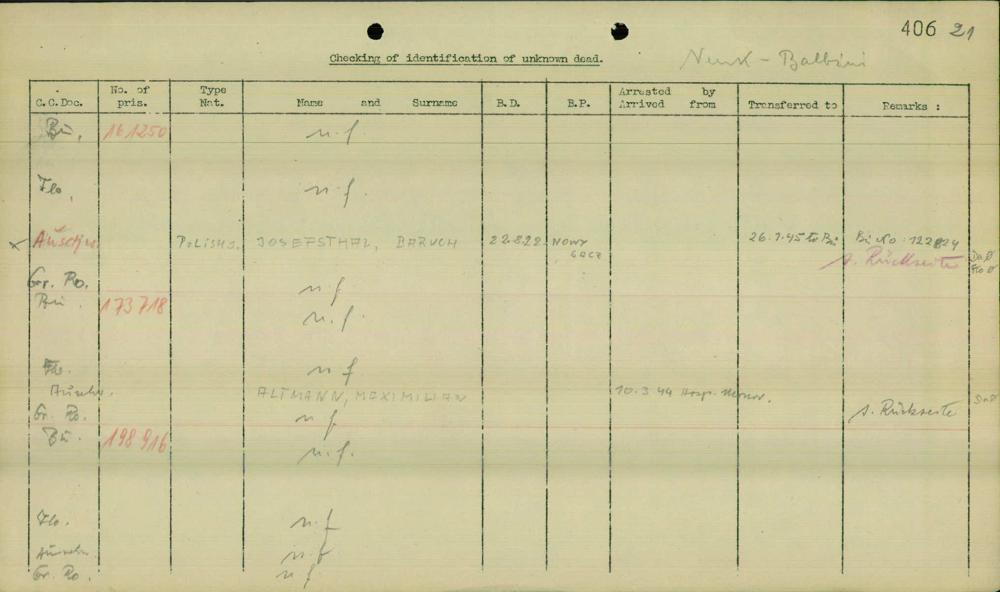 406 21
Checking of identification of unknown dead.
Neunk - Balbini
C.C.Doc. No. of pris. Type Nat. Name and Surname B.D. B.P. Arrested by Arrived from Transferred to Remarks :
Bu. 161250 n.f.
Flo. n.f.
x Auschw. Polish J. JOSEFSTHAL, BARUCH 22.8.22 NOWY 26.1.45 to Bu Bu No: 122824
SACZ s. Rückseite Da Ø
Flo Ø
Gr. Ro. n.f.
Bu. 173718 n.f.
Flo. n.f.
Auschw. ALTMANN, MAXIMILIAN 10.3.44 Hosp. Monow. Da Ø
Gr. Ro. n.f. s. Rückseite
Bu. 198916 n.f.
Flo. n.f.
Auschw. n.f.
Gr. Ro. n.f.